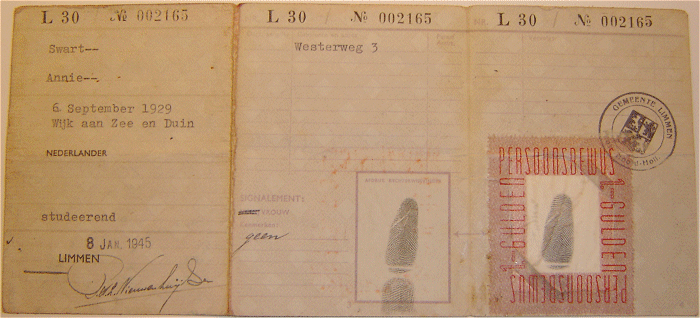 L 30 / № 002165
Swart--
Annie--
6 September 1929
Wijk aan Zee en Duin
NEDERLANDER
studeerend
8 JAN. 1945
LIMMEN
L 30 / № 002165
Westerweg 3
SIGNALEMENT:
VROUW
geen
L 30 / № 002165
GEMEENTE LIMMEN
PERSOONSBEWIJS
1 GULDEN
1 GULDEN
PERSOONSBEWIJS